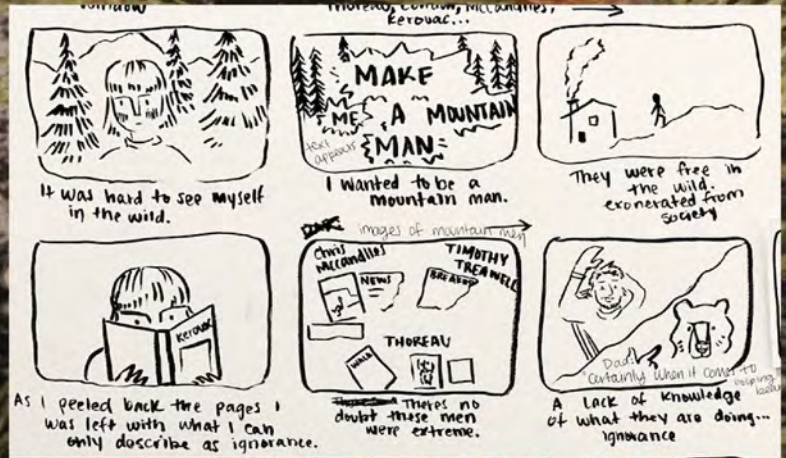 window
Thoreau, London, McCandless,
Kerouac...
MAKE
ME A MOUNTAIN
MAN
text
appears
It was hard to see myself
in the wild.
I wanted to be a
mountain man.
They were free in
the wild.
exonerated from
society
images of mountain men
Kerouac
Chris
McCandless
TIMOTHY
TREAWELL
NEWS
BREAKING
THOREAU
WALD
Dad:
"certainly when it comes to
As I peeled back the pages I
was left with what I can
only describe as ignorance.
Theres no
doubt these men
were extreme.
A lack of knowledge
of what they are doing...
ignorance